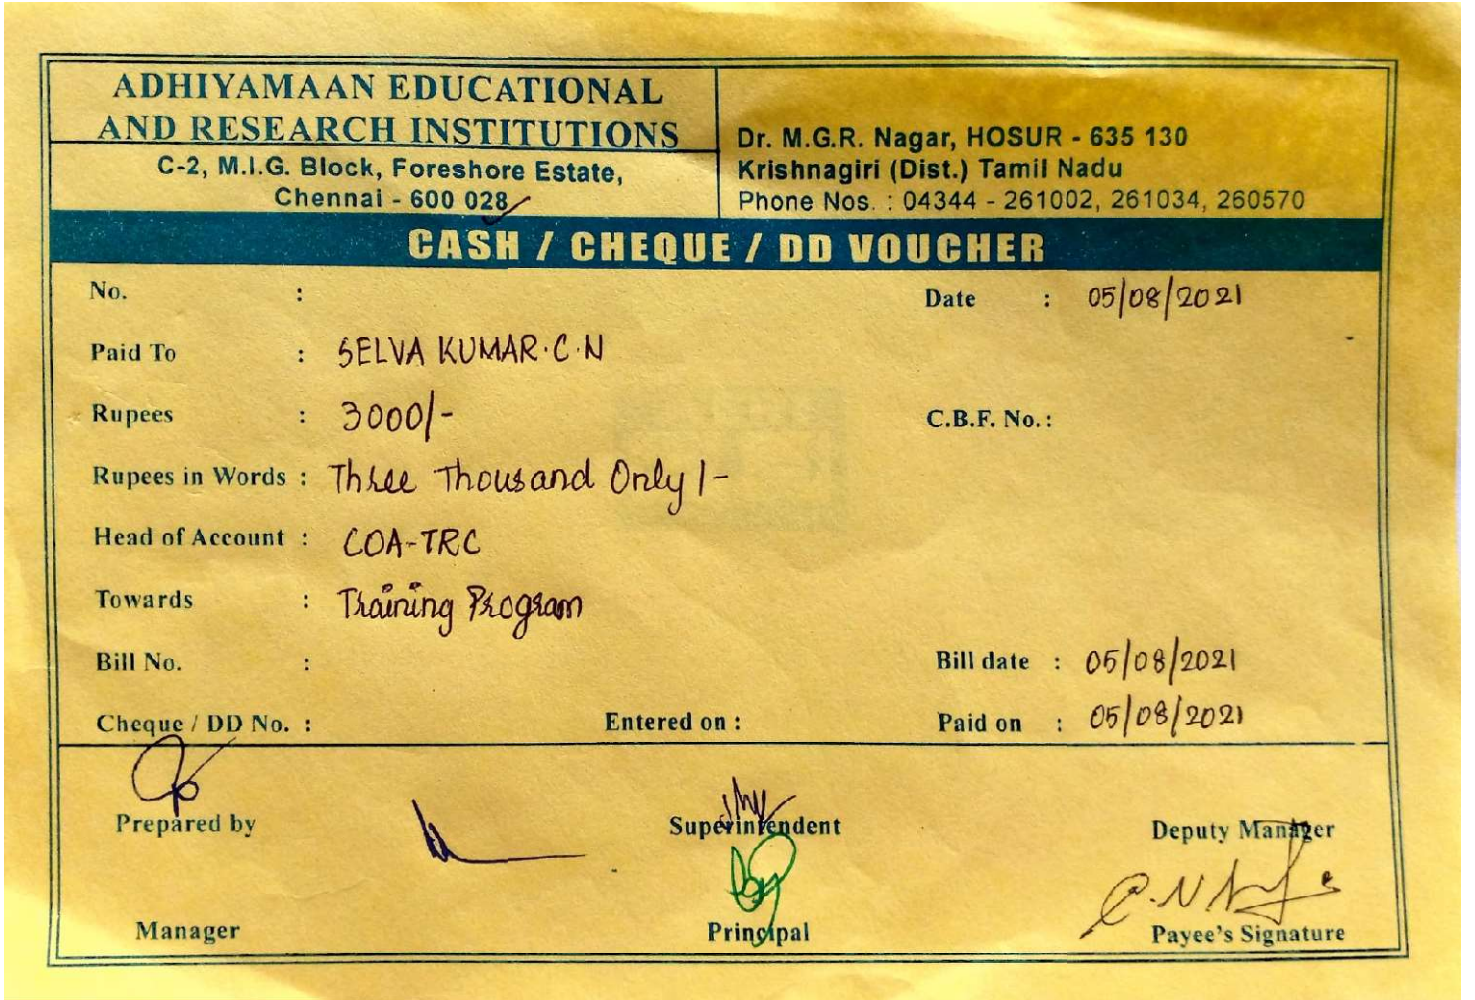 ADHIYAMAAN EDUCATIONAL
AND RESEARCH INSTITUTIONS
C-2, M.I.G. Block, Foreshore Estate,
Chennai - 600 028
Dr. M.G.R. Nagar, HOSUR - 635 130
Krishnagiri (Dist.) Tamil Nadu
Phone Nos. : 04344 - 261002, 261034, 260570
CASH / CHEQUE / DD VOUCHER
No. : Date : 05/08/2021
Paid To : SELVA KUMAR.C.N
Rupees : 3000/- C.B.F. No. :
Rupees in Words : Three Thousand Only/-
Head of Account : COA-TRC
Towards : Training Program
Bill No. : Bill date : 05/08/2021
Cheque / DD No. : Entered on : Paid on : 05/08/2021
Prepared by Superintendent Deputy Manager
Manager Principal Payee's Signature